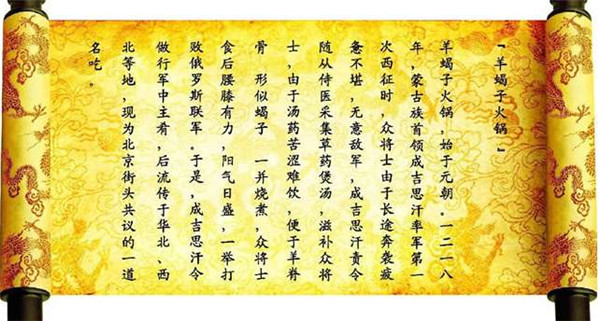 『羊蝎子火锅』
羊蝎子火锅，始于元朝。一二一八
年，蒙古族首领成吉思汗率军第一
次西征时，众将士由于长途奔袭疲
惫不堪，无意敌军，成吉思汗责令
随从侍医采集草药煲汤，滋补众将
士，由于汤药苦涩难饮，便于羊脊
骨 形似蝎子 一并烧煮，众将士
食后腰膝有力，阳气日盛，一举打
败俄罗斯联军。于是，成吉思汗令
做行军中主肴，后流传于华北、西
北等地，现为北京街头共议的一道
名吃。